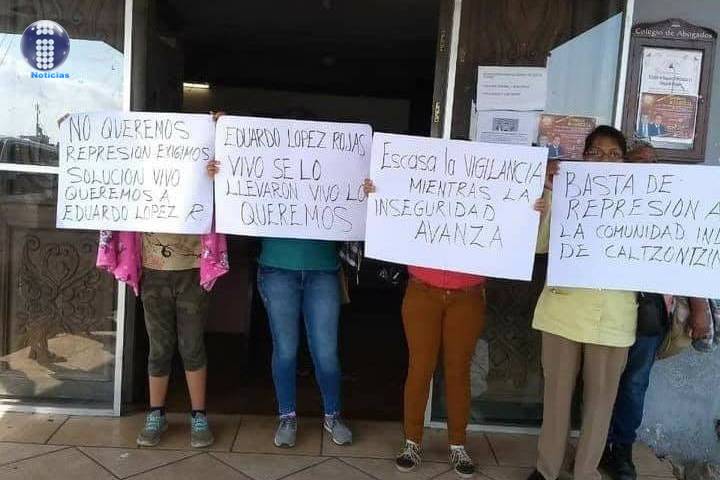 Noticias
Colegio de Abogados
NO QUEREMOS
REPRESIÓN EXIGIMOS
SOLUCIÓN VIVO
QUEREMOS A
EDUARDO LOPEZ R
EDUARDO LOPEZ ROJAS
VIVO SE LO
LLEVARON VIVO LO
QUEREMOS
Escasa la VIGILANCIA
MIENTRAS LA
INSEGURIDAD
AVANZA
BASTA DE
REPRESION A
LA COMUNIDAD IN
DE CALTZONTZIN